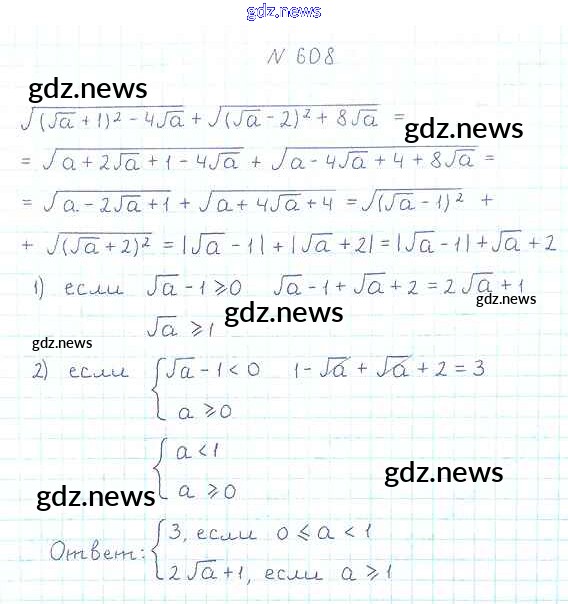 gdz.news
N 608
gdz.news
√((√a + 1)² - 4√a) + √((√a - 2)² + 8√a) =
gdz.news
= √(a + 2√a + 1 - 4√a) + √(a - 4√a + 4 + 8√a) =
= √(a - 2√a + 1) + √(a + 4√a + 4) = √((√a - 1)²) +
+ √((√a + 2)²) = |√a - 1| + |√a + 2| = |√a - 1| + √a + 2
1) если √a - 1 ⩾ 0 √a - 1 + √a + 2 = 2√a + 1
gdz.news
gdz.news
√a ⩾ 1
gdz.news
2) если { √a - 1 < 0 1 - √a + √a + 2 = 3
a ⩾ 0
{ a < 1
gdz.news
a ⩾ 0
gdz.news
Ответ: { 3, если 0 ⩽ a < 1
2√a + 1, если a ⩾ 1